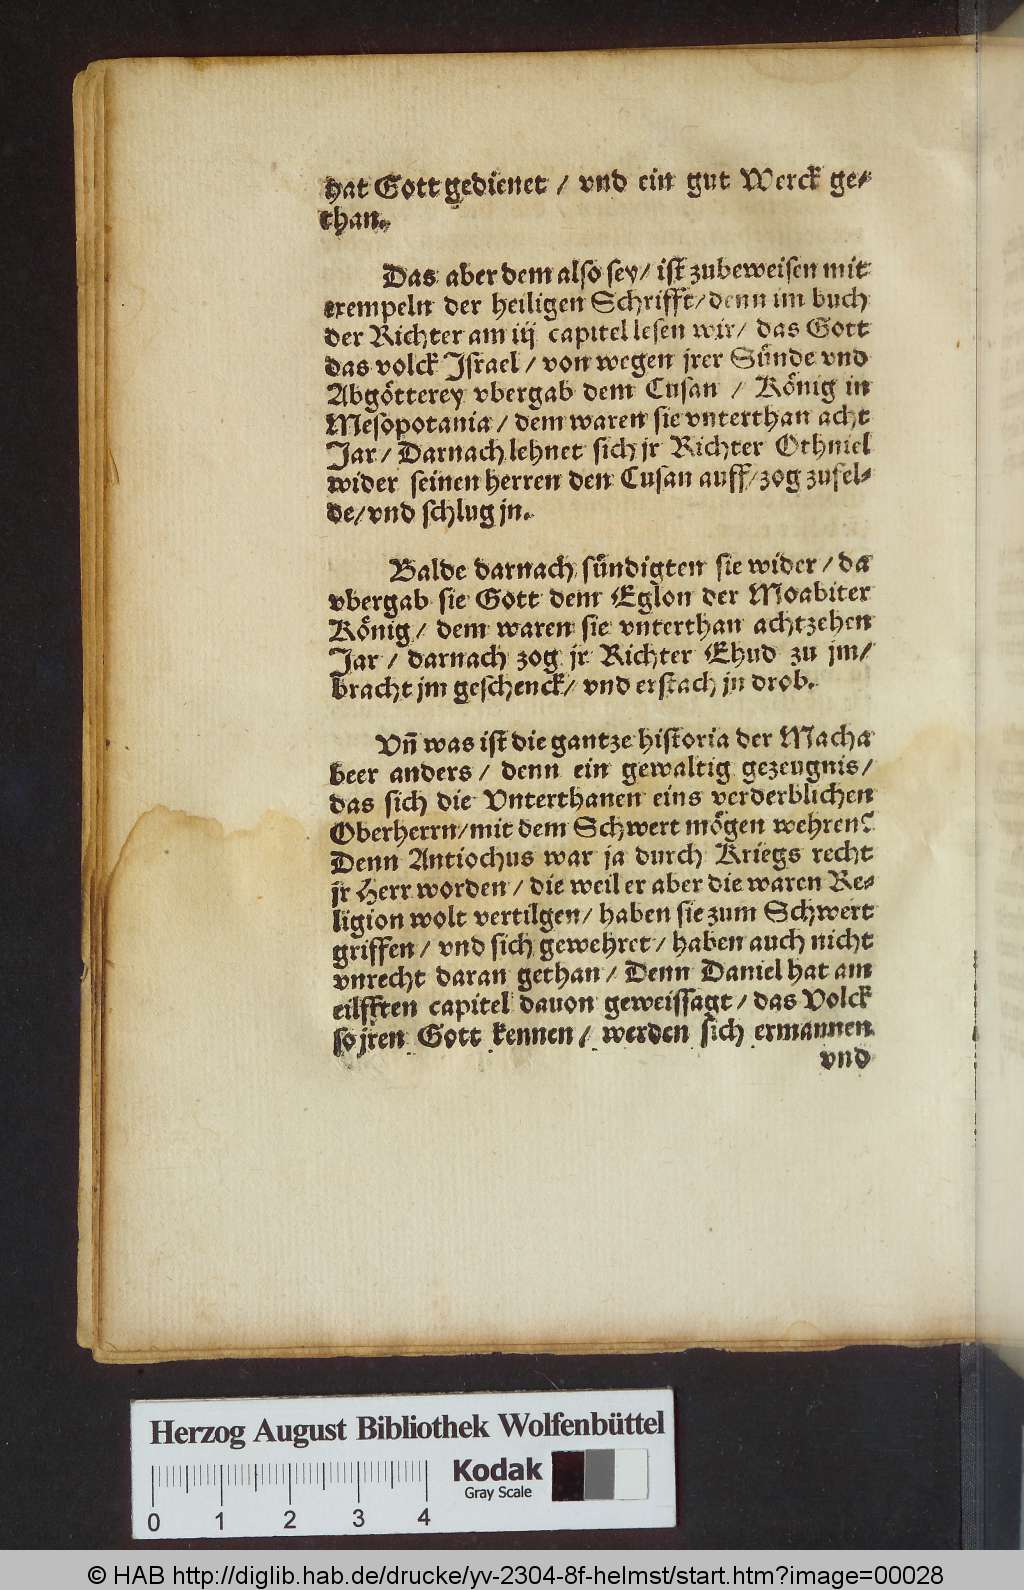 hat Gott gedienet / vnd ein gut Werck ge-
than.
Das aber dem also sey / ist zubeweisen mit
exempeln der heiligen Schrifft / denn im buch
der Richter am iij capitel lesen wir / das Gott
das volck Israel / von wegen jrer Sünde vnd
Abgötterey vbergab dem Cusan / König in
Mesopotania / dem waren sie vnterthan acht
Jar / Darnach lehnet sich jr Richter Othniel
wider seinen herren den Cusan auff / zog zufel-
de / vnd schlug jn.
Balde darnach sündigten sie wider / da
vbergab sie Gott dem Eglon der Moabiter
König / dem waren sie vnterthan achtzehen
Jar / darnach zog jr Richter Ehud zu jm /
bracht jm geschenck / vnd erstach jn drob.
Vñ was ist die gantze historia der Macha
beer anders / denn ein gewaltig gezeugnis /
das sich die Vnterthanen eins verderblichen
Oberherrn / mit dem Schwert mögen wehren?
Denn Antiochus war ja durch Kriegs recht
jr Herr worden / die weil er aber die waren Re-
ligion wolt vertilgen / haben sie zum Schwert
griffen / vnd sich gewehret / haben auch nicht
vnrecht daran gethan / Denn Daniel hat am
eilfften capitel dauon geweissagt / das Volck
so jren Gott kennen / werden sich ermannen
vnd
Herzog August Bibliothek Wolfenbüttel
Kodak
Gray Scale
0 1 2 3 4
© HAB http://diglib.hab.de/drucke/yv-2304-8f-helmst/start.htm?image=00028